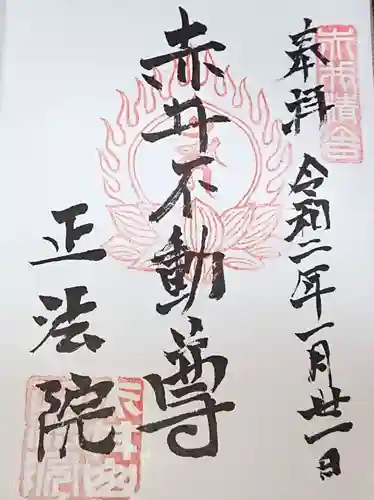 奉拝
令和二年一月廿一日
赤井不動尊
正法院